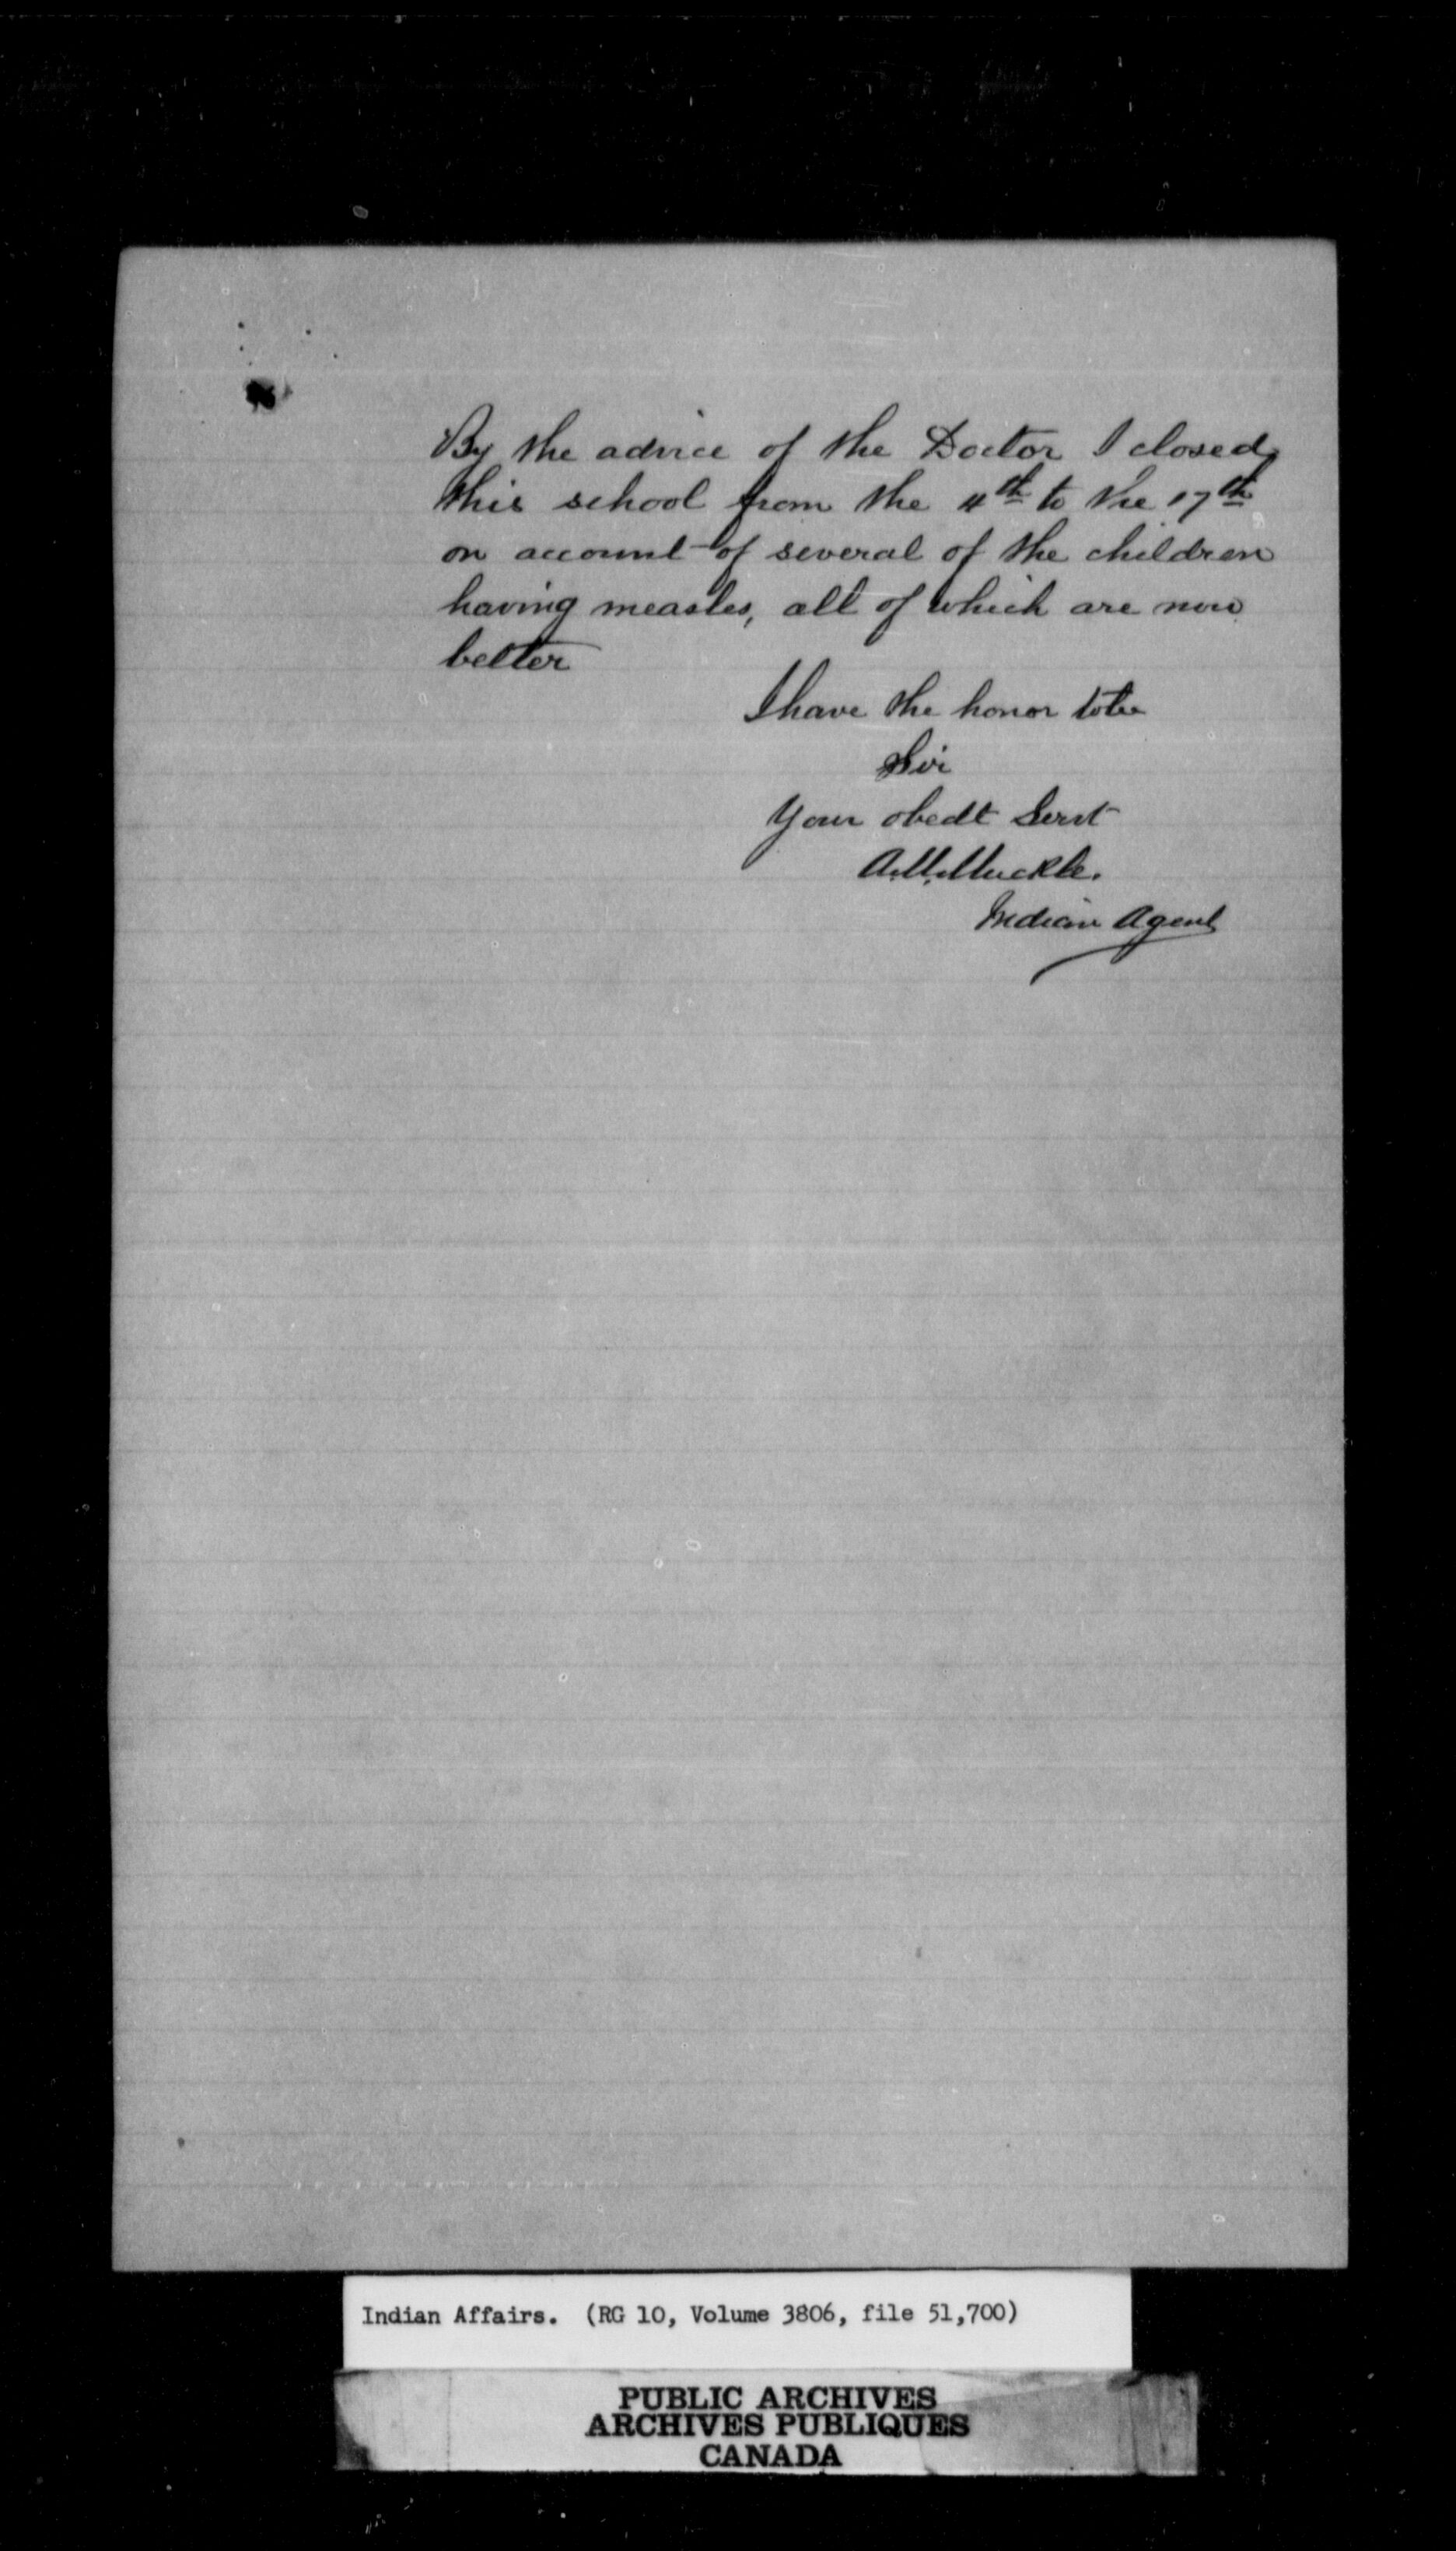 By the advice of the Doctor I closed
this school from the 4th to the 17th
on account of several of the children
having measles, all of which are now
better
I have the honor to be
Sir
Your obedt Servt
A.M. Muckle.
Indian Agent
Indian Affairs. (RG 10, Volume 3806, file 51,700)
PUBLIC ARCHIVES
ARCHIVES PUBLIQUES
CANADA